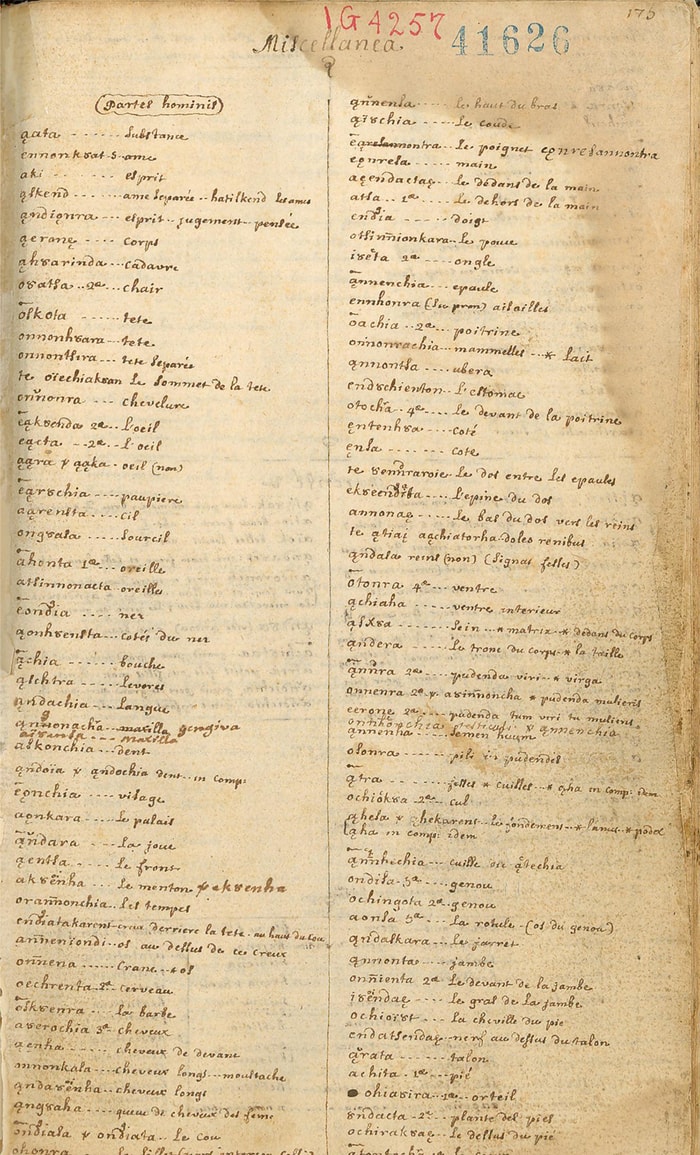 IG4257
41626
175
Miscellanea
Partes hominis
ąata ------ substance
ennonksat-5-ame
aki ------ esprit
ąskend ---- ame separée -- hatiskend les ames
ąndiąnra ---- esprit -- jugement pensée
ąeronę ---- corps
ąhsarinda -- cadavre
osatsa -- 2ᵃ -- chair
oskota ---- tete
onnonhsara -- tete
onnontsira --- tete separée
te oiechiaksan Le sommet de la tete
onnonra --- chevelure
eąksenda 2ᵃ -- L'oeil
eącta -- 2ᵃ -- L'oeil
ąąra ɣ ąąka -- oeil (non)
eąrschia ---- paupiere
aąrensta ---- cil
ongsala ---- sourcil
ahonta 1ᵃ -- oreille
atsinnonacta oreilles
eondia ---- nez
ąonhsensta -- cotés du nez
ąchia ---- bouche
ąschtra ---- Levres
ąndachia --- Langue
ąnnonachia -- maxilla gengiva
maxilla
askonchia -- dent
ąndoia ɣ ąndochia dent -- in comp:
eąnchia ---- visage
aonkara --- Le palais
ąndara ---- La joue
ąentsa ---- Le front
aksenha --- Le menton ɣ eksenha
orannonchia -- Les tempes
endiatakarent-creux derriere la tete - au haut du cou
annenrondi-os au dessus de ce creux
onnena ---- Crane -- * os
oechrenta -2ᵃ- cerveau
osksenra --- la barbe
aserochia 3ᵃ - cheveux
ąenha --- cheveux de devant
annonkala --- cheveux longs -- moustache
ąndasenha --- cheveux longs
ąngsaha ---- queue de cheveux des feme
ondiala ɣ ondiata -- Le cou
ąnnensa ---- Le haut du bras
ąischia ---- Le coude
Le poignet eąnresannontra
eąnresa ---- main
aąendactaę --- Le dedans de la main
atsa -- 1ᵃ ---- Le dehors de la main
endia ---- doigt
otsinnionkara-- Le pouce
iseta 2ᵃ ---- ongle
ąnnenchia --- epaule
ennhonra (sn pron) aisselles
oachia -- 2ᵃ -- poitrine
onnonrachia -- mammelles --- * Lait
ąnnontsa --- ubera
endschienton -- L'estomac
otocha - 4ᵃ --- Le devant de la poitrine
ąntenhsa --- coté
ensa ---- cote
te senraroie Le dos entre les epaules
L'epine du dos
annonaę --- Le bas du dos vers les reins
te ątiai aąchiatorha doleo renibus
ąndala reins (non) (signat felles)
otonra 4ᵃ --- ventre
ąchiaha ---- ventre interieur
sein --* matrix -* dedans du corps
ąndera ---- Le tronc du corps * la taille
ąnnra 2ᵃ ---- pudenda viri * virga
onnenra 2ᵃ ɣ asinnoncha * pudenda mulieris
eerone 2ᵃ ---- pudenda tum viri tu mulieris
testiculi ɣ ąnnenchia
annenha --- semen huum
osonra ---- pili in pudendis
ątra ---- felles * cuisses -- * ąha in comp: idem
ochioksa - 2ᵃ --- cul
ąhesa ɣ hekaront -- Le fondement -- * l'anus -- * podex
ąha in comp: idem
ąnnhechia --- cuisse ou ątechia
ondisa - 5ᵃ ---- genou
ochingota 2ᵃ - genou
aonsa 5ᵃ --- La rotule - (os du genou)
ąndaskara --- Le jarret
ąnnonta ---- jambe
onnienta 2ᵃ Le devant de la jambe
isendaę ---- Le gras de La jambe
ochioist --- La cheville du pié
endatsendaę -- nerf au dessus du talon
ąrata ---- talon
achita - 1ᵃ -- pié
ohiasira -- 1ᵃ -- orteil
sndacta - 2ᵃ -- plante des piés
ochiraksaę --- Le dessus du pié